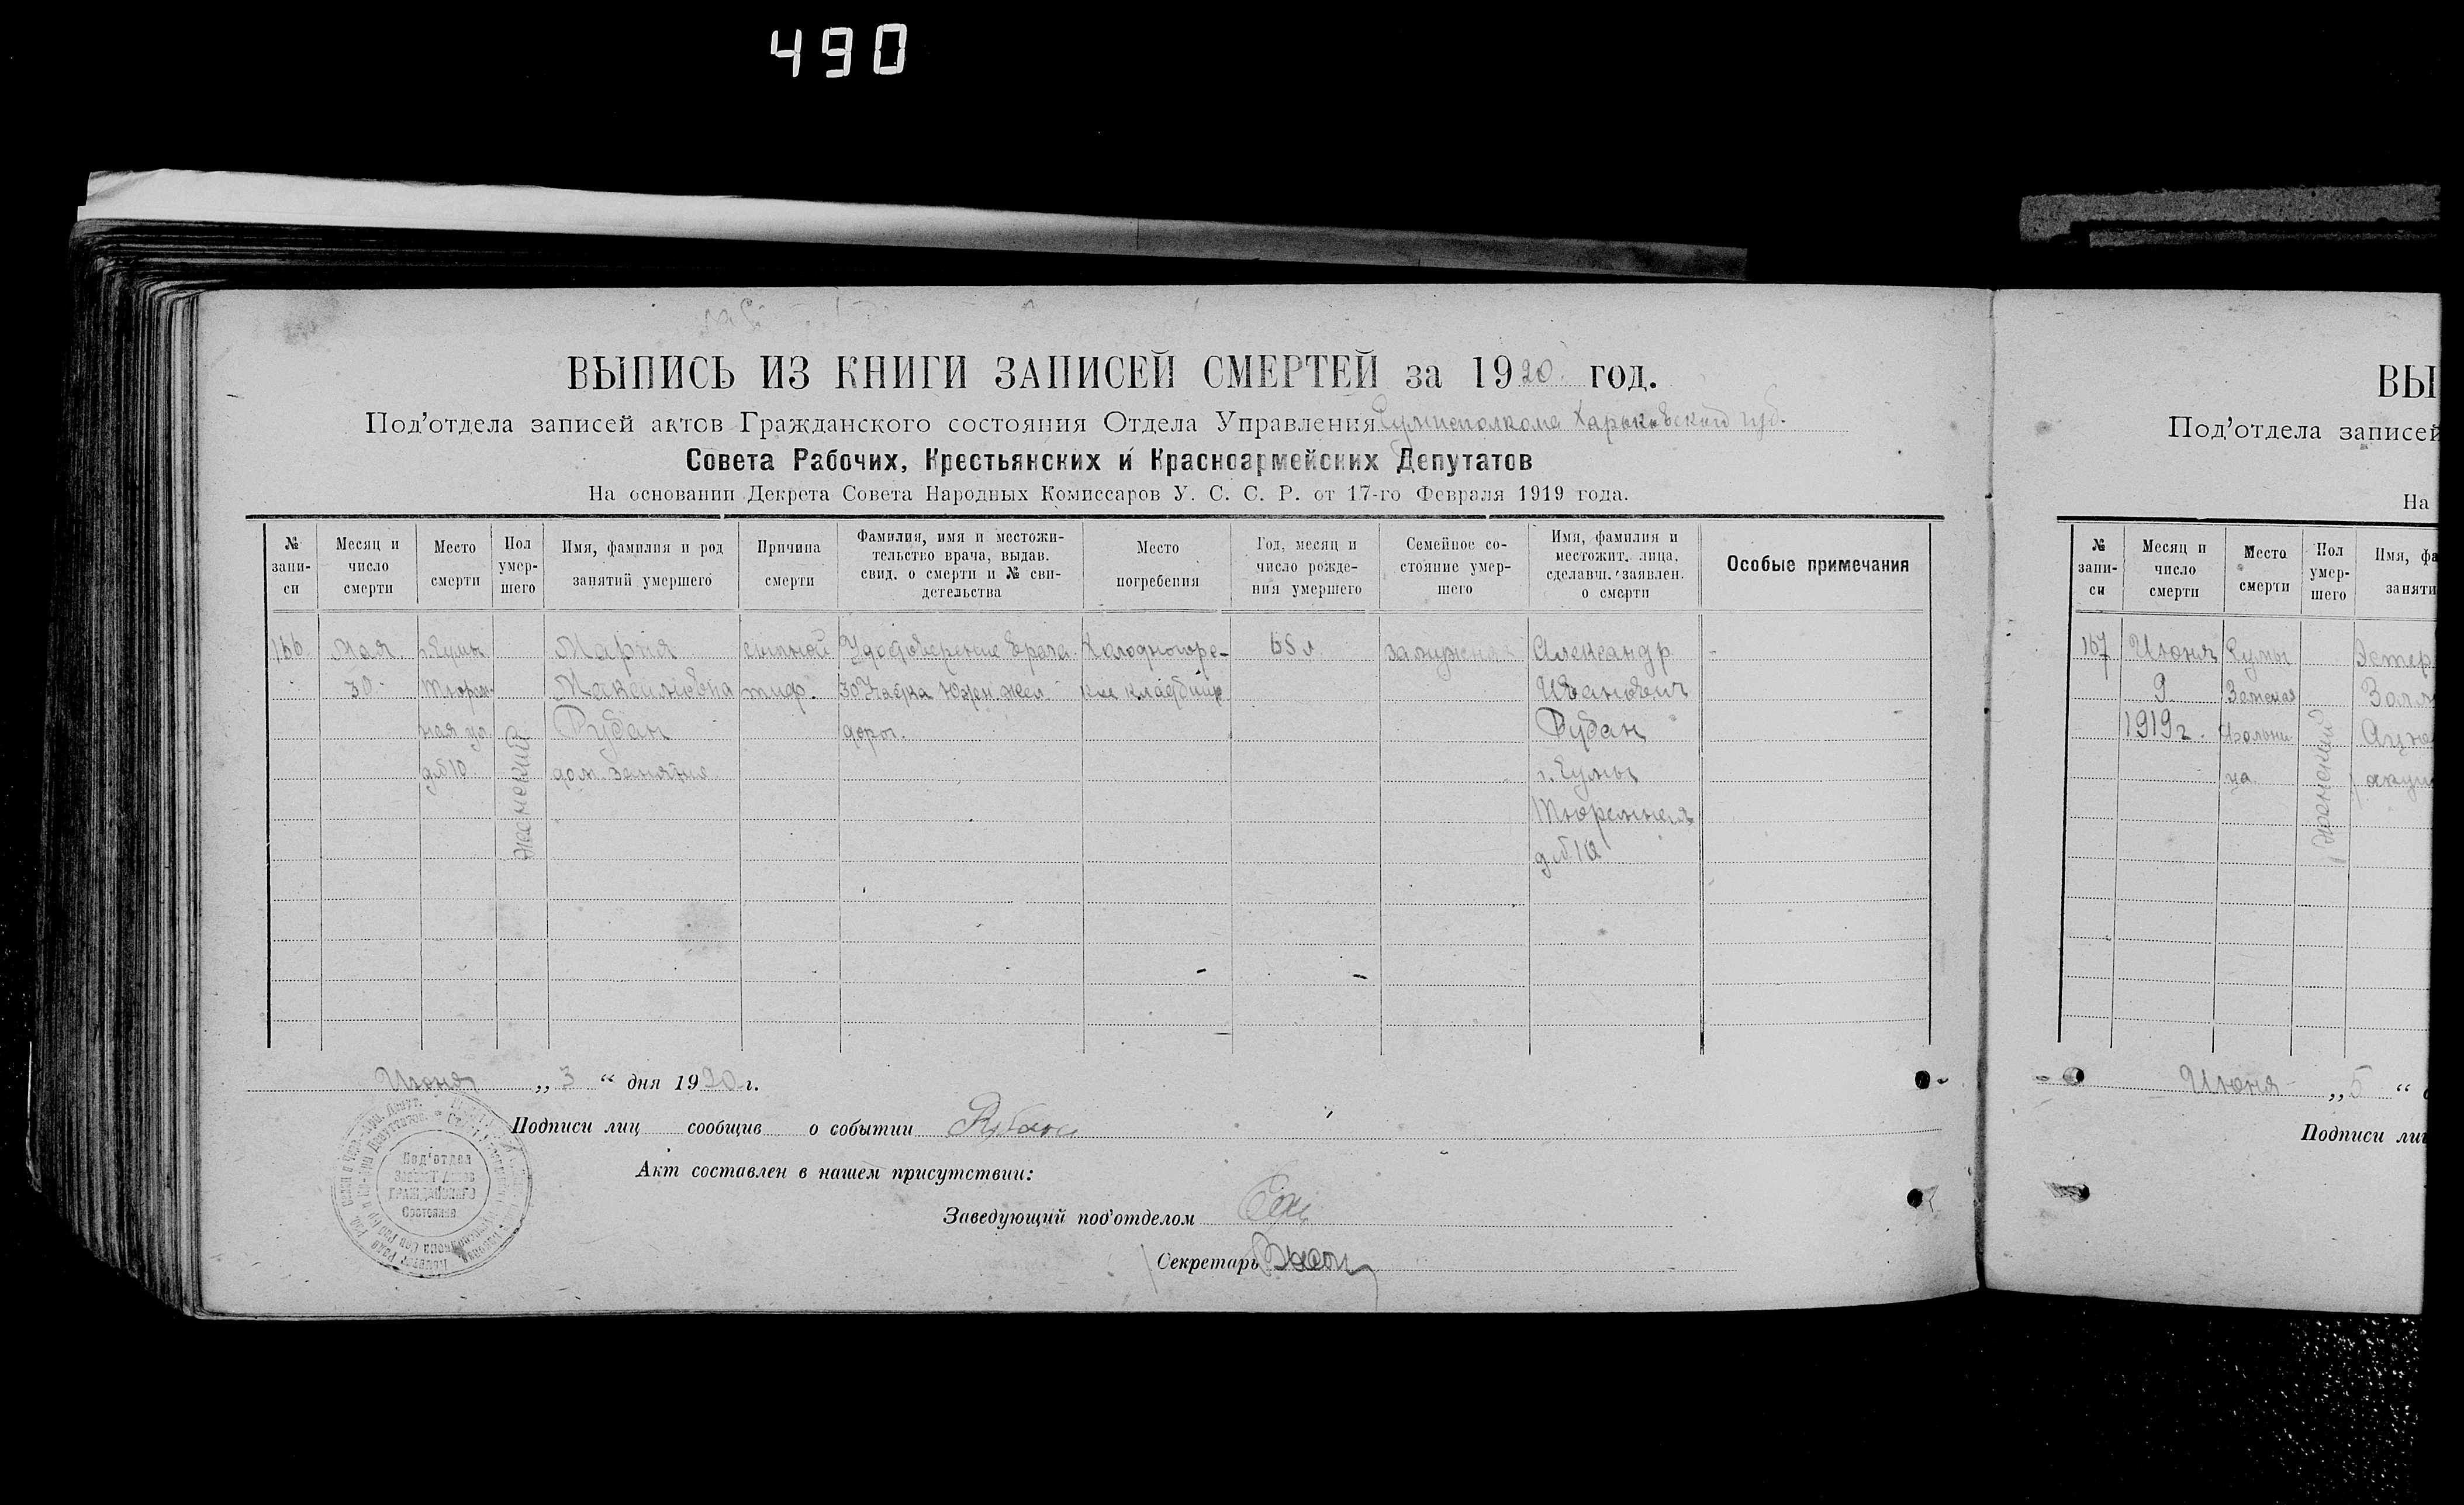 490
ВЫПИСЬ ИЗ КНИГИ ЗАПИСЕЙ СМЕРТЕЙ за 1920 год.
Под'отдела записей актов Гражданского состояния Отдела Управления Сумисполкома Харьковской губ.
Совета Рабочих, Крестьянских и Красноармейских Депутатов
На основании Декрета Совета Народных Комиссаров У. С. С. Р. от 17-го Февраля 1919 года.
№ запи-
си
Месяц и
число
смерти
Место
смерти
Пол
умер-
шего
Имя, фамилия и род
занятий умершего
Причина
смерти
Фамилия, имя и местожи-
тельство врача, выдав.
свид. о смерти и № сви-
детельства
Место
погребения
Год, месяц и
число рожде-
ния умершего
Семейное со-
стояние умер-
шего
Имя, фамилия и
местожит. лица,
сделавш. заявлен.
о смерти
Особые примечания
166.
Мая
30
г. Сумы
Тюрем-
ная ул.
д.№10
женский
Мария
Максимовна
Рубан
дом. занятия
сыпной
тиф.
Удостоверение врача
30 Уч-тка Южн жел
дорог.
Холодногорс-
кое кладбище
65 л
замужняя
Александр
Иванович
Рубан
г. Сумы
Тюремная
д.№10
Июня „ 3 “ дня 1920 г.
Подписи лиц сообщив о событии Рубан
Акт составлен в нашем присутствии:
Заведующий под'отделом
Секретарь
Под'отдел
Записи Актов
ГРАЖДАНСКОГО
Состояния
ВЫ
Под'отдела записей
На
№ запи-
си
Месяц и
число
смерти
Место
смерти
Пол
умер-
шего
Имя, фа
заняти
167
Июня
9
1919 г.
Сумы
Земская
больни-
ца
женский
Эстер
Июня „ 5 “
Подписи лиц